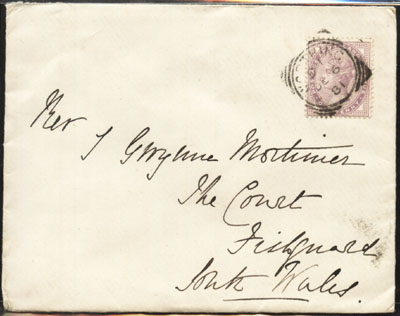 Rev J Gwynne Mortimer
The Court
Fishguard
South Wales.